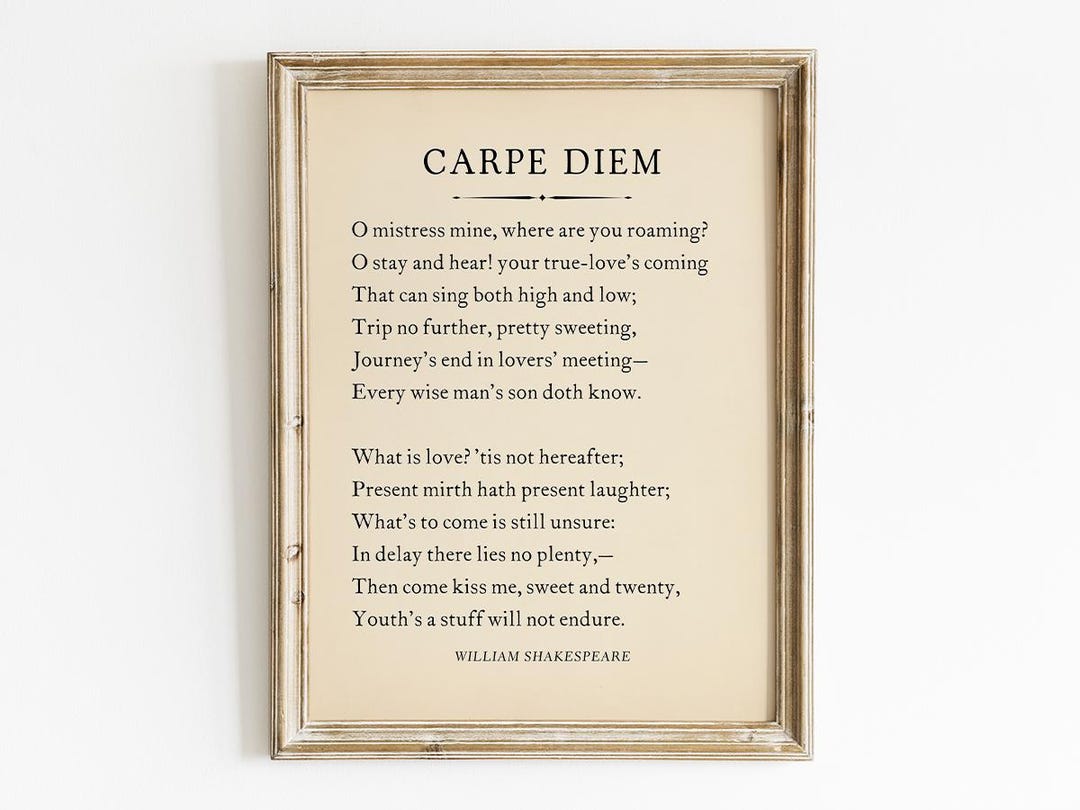 CARPE DIEM
O mistress mine, where are you roaming?
O stay and hear! your true-love’s coming
That can sing both high and low;
Trip no further, pretty sweeting,
Journey’s end in lovers’ meeting—
Every wise man’s son doth know.
What is love? ’tis not hereafter;
Present mirth hath present laughter;
What’s to come is still unsure:
In delay there lies no plenty,—
Then come kiss me, sweet and twenty,
Youth’s a stuff will not endure.
WILLIAM SHAKESPEARE